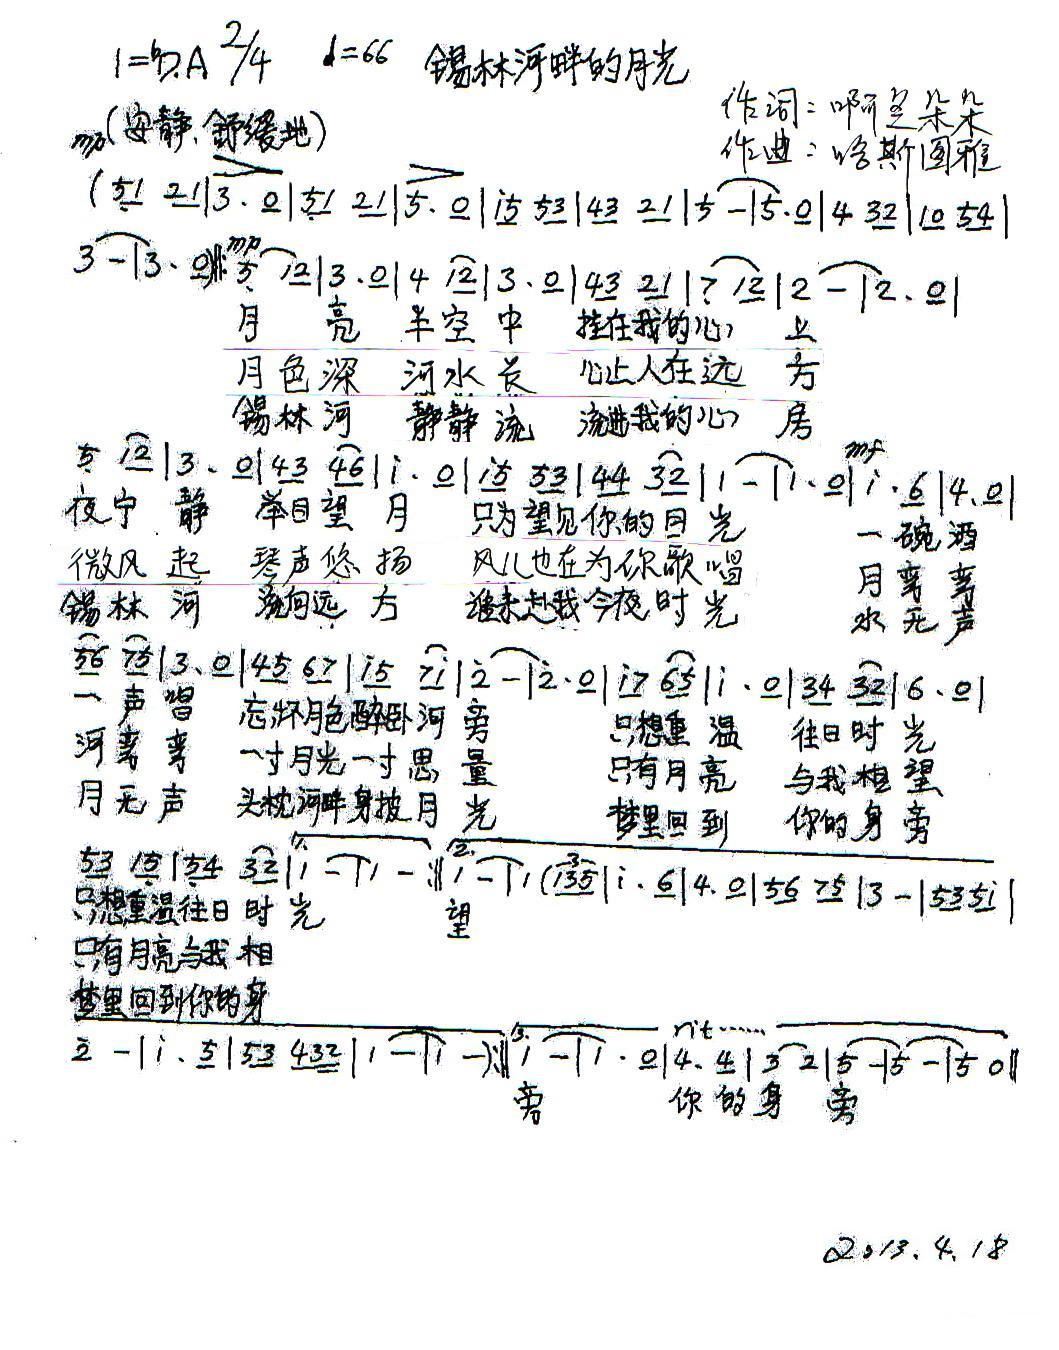 1=♭D.A 2/4 ♩=66 锡林河畔的月光
作词：啊芝朵朵
mp(安静、舒缓地)
作曲：哈斯图雅
(51 21|3·0|51 21|5·0|i5 53|43 21|5-|5·0|4 32|10 54|
3-|3·0)‖: mp 5 12|3·0|4 12|3·0|43 21|7 12|2-|2·0|
月 亮 半空中 挂在我的心 上
月色深 河水长 心上人在远 方
锡林河 静静流 流进我的心 房
5 12|3·0|43 46|i·0|i5 53|44 32|1-|1·0| mf i·6|4·0|
夜宁静 举目望月 只为望见你的月光 一碗酒
微风起 琴声悠扬 风儿也在为你歌唱 月弯弯
锡林河 流向远方 谁来赴我今夜时光 水无声
56 75|3·0|45 67|i5 7i|2-|2·0|i7 65|i·0|34 32|6·0|
一声唱 忘怀月色醉卧河旁 只想重温 往日时光
河弯弯 一寸月光一寸思量 只有月亮 与我相望
月无声 头枕河畔身披月光 梦里回到 你的身旁
53 15|54 32|1. 1-|1-:‖2. 1-|1(135|i·6|4·0|56 75|3-|535i|
只想重温往日时光 望
只有月亮与我相
梦里回到你的身
2-|i·5|53 432|1-|1-):‖3. 1-|1·0| rit…… 4·4|3 2|5-|5-|5 0‖
旁 你的身旁
2013.4.18